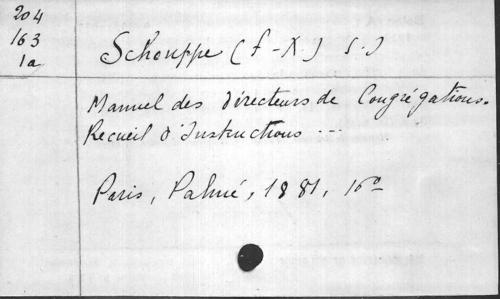 204
163
1a
Schouppe (f-X.) s.j
Manuel des Directeurs de Congrégations.
Recueil d'Instructions ...
Paris, Palmé, 1881, 16º